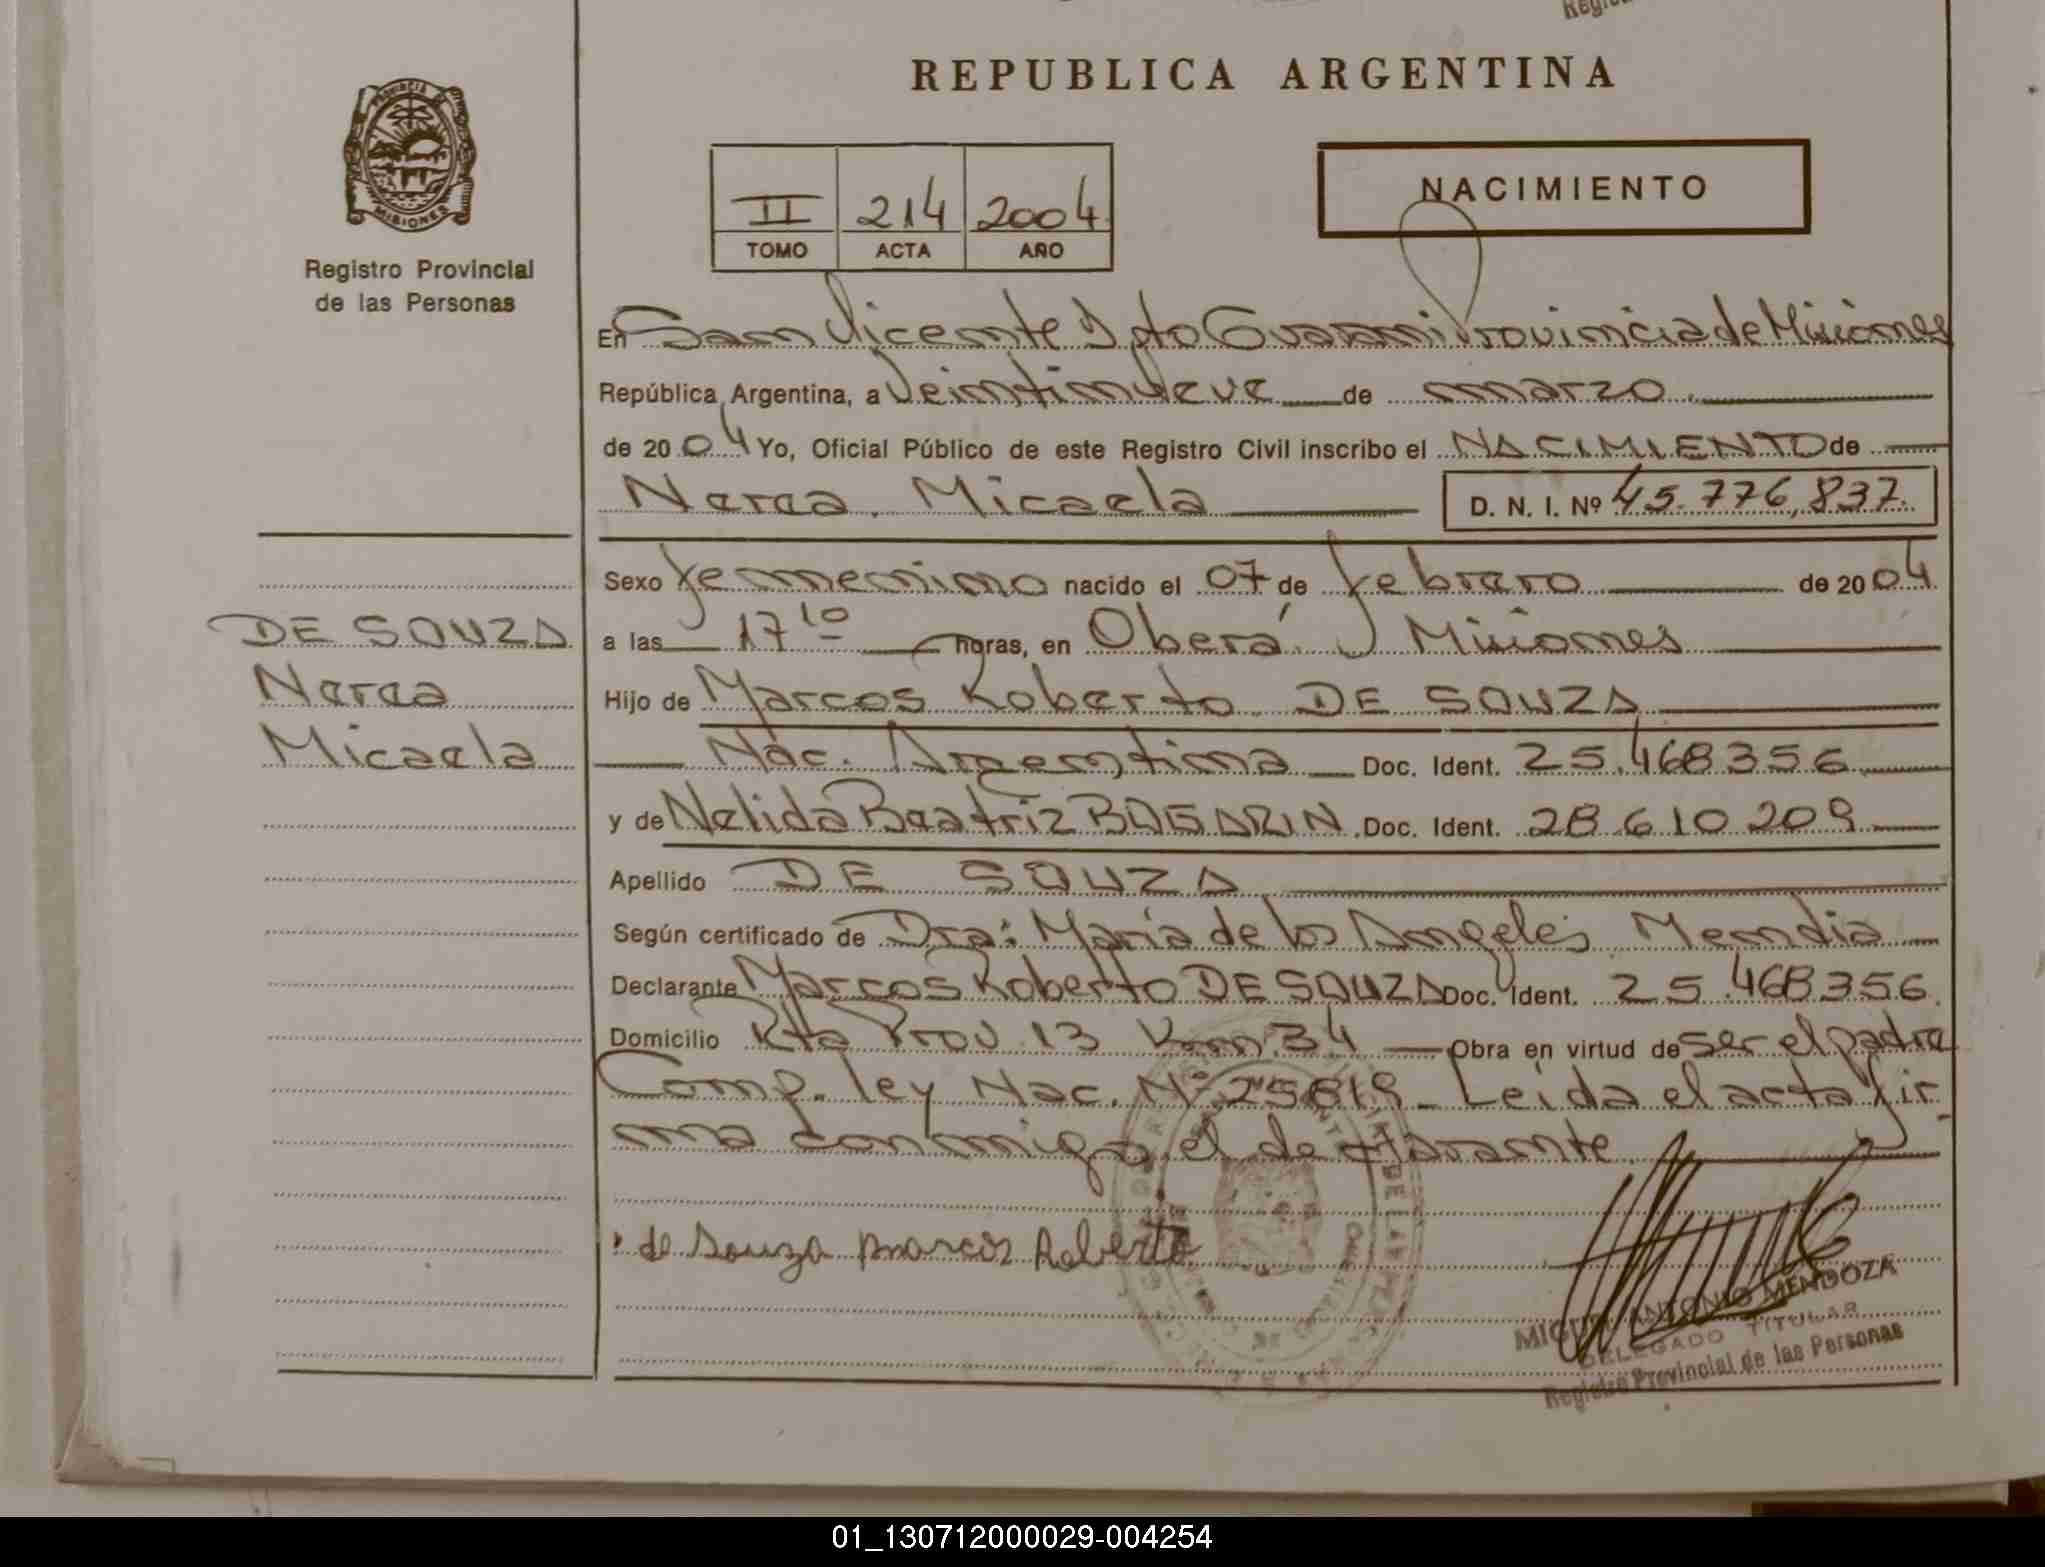 REPUBLICA ARGENTINA
PROVINCIA DE MISIONES
Registro Provincial
de las Personas
II 214 2004
TOMO ACTA AÑO
NACIMIENTO
En San Vicente Dpto Guaraní Provincia de Misiones
República Argentina, a Veintinueve de marzo
de 2004 Yo, Oficial Público de este Registro Civil inscribo el NACIMIENTO de
Nerea Micaela D. N. I. Nº 45.776,837.
Sexo femenino nacido el 07 de febrero de 2004
a las 17 10 horas, en Oberá Misiones
Hijo de Marcos Roberto DE SOUZA
Nac. Argentina Doc. Ident. 25.468356
y de Nelida Beatriz Doc. Ident. 28.610 209
Apellido DE SOUZA
Según certificado de Dra: María de los Angeles Mendia
Declarante Marcos Roberto DE SOUZA Doc. Ident. 25.468356
Domicilio Rta Prov. 13 Km 34 Obra en virtud de ser el padre
Comp. ley Nac. Nº 25819 - Leida el acta fir-
ma conmigo el de
de Souza marcos Roberto
DE SOUZA
Nerea
Micaela
MIGUEL ANTONIO MENDOZA
DELEGADO TITULAR
Registro Provincial de las Personas
01_130712000029-004254